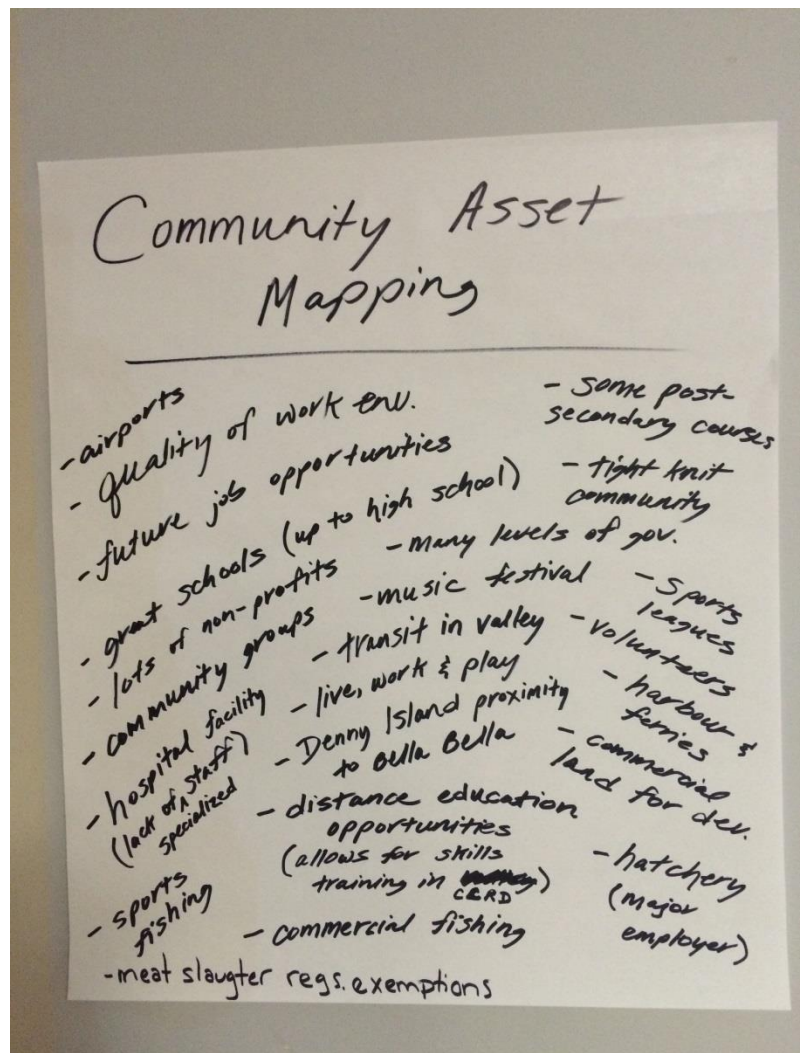 Community Asset
Mapping
- airports
- quality of work env.
- future job opportunities
- great schools (up to high school)
- lots of non-profits
- community groups
- hospital facility
(lack of ^ staff)
specialized
- sports
fishing
- many levels of gov.
- music festival
- transit in valley
- live, work & play
- Denny Island proximity
to Bella Bella
- distance education
opportunities
(allows for skills
training in
CCRD)
- commercial fishing
- some post-
secondary courses
- tight knit
community
- Sports
leagues
- volunteers
- harbour &
ferries
- commercial
land for dev.
- hatchery
(major
employer)
- meat slaugter regs. exemptions